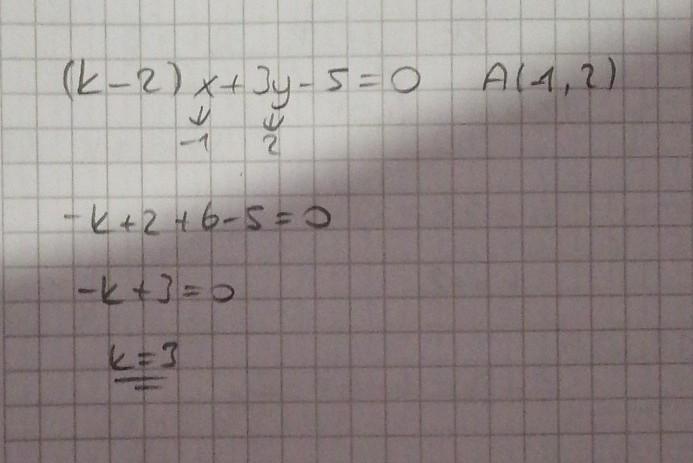 (k-2)x+3y-5=0 A(-1,2)
↓ ↓
-1 2
-k+2+6-5=0
-k+3=0
k=3